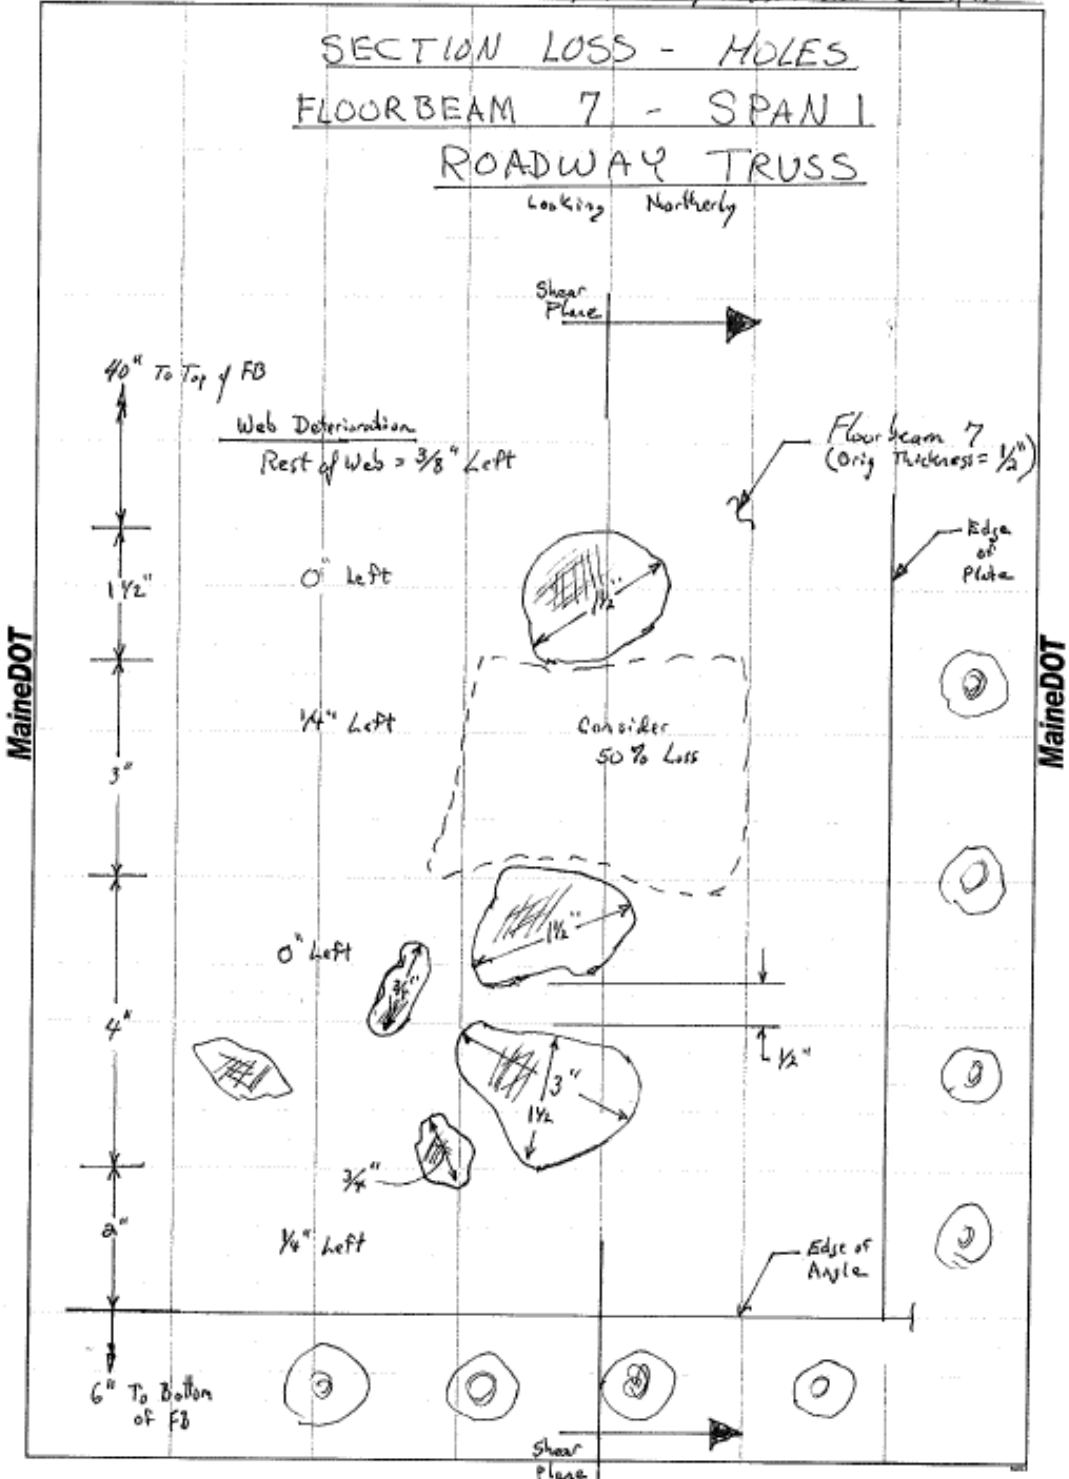 SECTION LOSS - HOLES
FLOORBEAM 7 - SPAN 1
ROADWAY TRUSS
Looking Northerly
Shear
Plane
40" To Top of FB
Web Deterioration
Rest of Web = 3/8" Left
Floorbeam 7
(Orig Thickness = 1/2")
Edge
of
Plate
1 1/2"
0" Left
1 1/2"
MaineDOT
MaineDOT
1/4" Left
Consider
50% Loss
3"
0" Left
1 1/2"
3/4"
4"
1/2"
3"
1 1/2
3/4"
2"
1/4" Left
Edge of
Angle
6" To Bottom
of FB
Shear
Plane